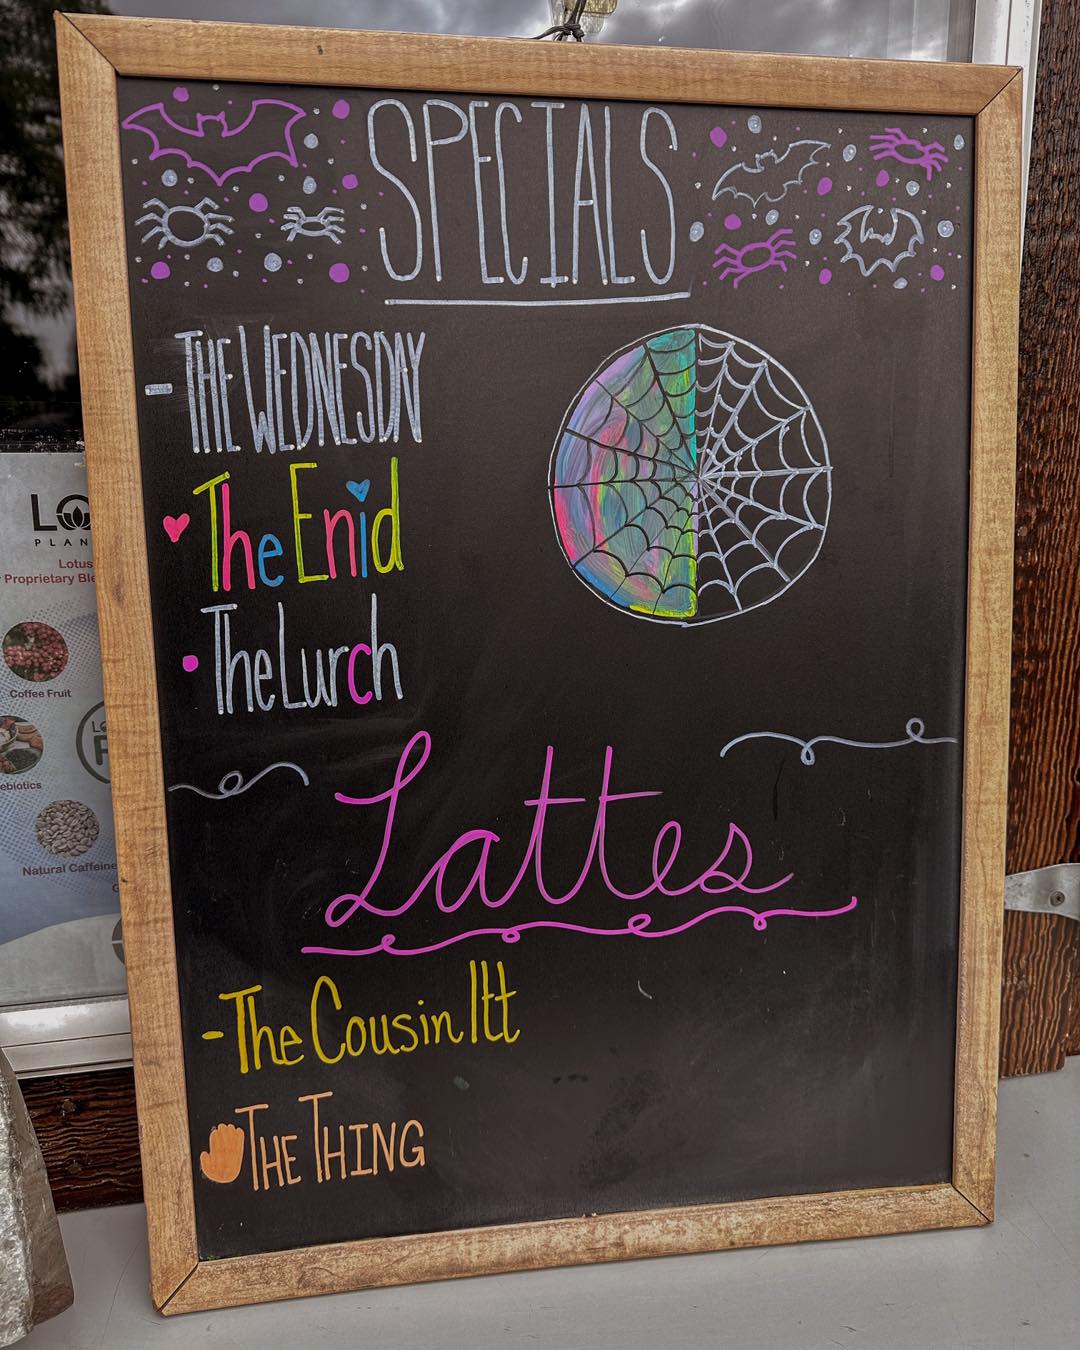 SPECIALS
- THE WEDNESDAY
The Enid
The Lurch
Lattes
- The Cousin Itt
THE THING
LO
PLAN
Lotus
Proprietary Ble
Coffee Fruit
ebiotics
Natural Caffeine